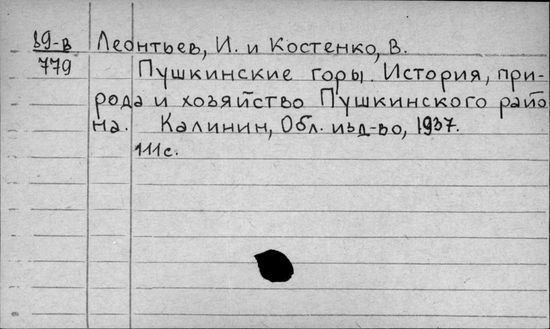 39-в Леонтьев, И. и Костенко, В.
779 Пушкинские горы. История, при-
рода и хозяйство Пушкинского райо
на. Калинин, Обл. изд-во, 1937.
111с.